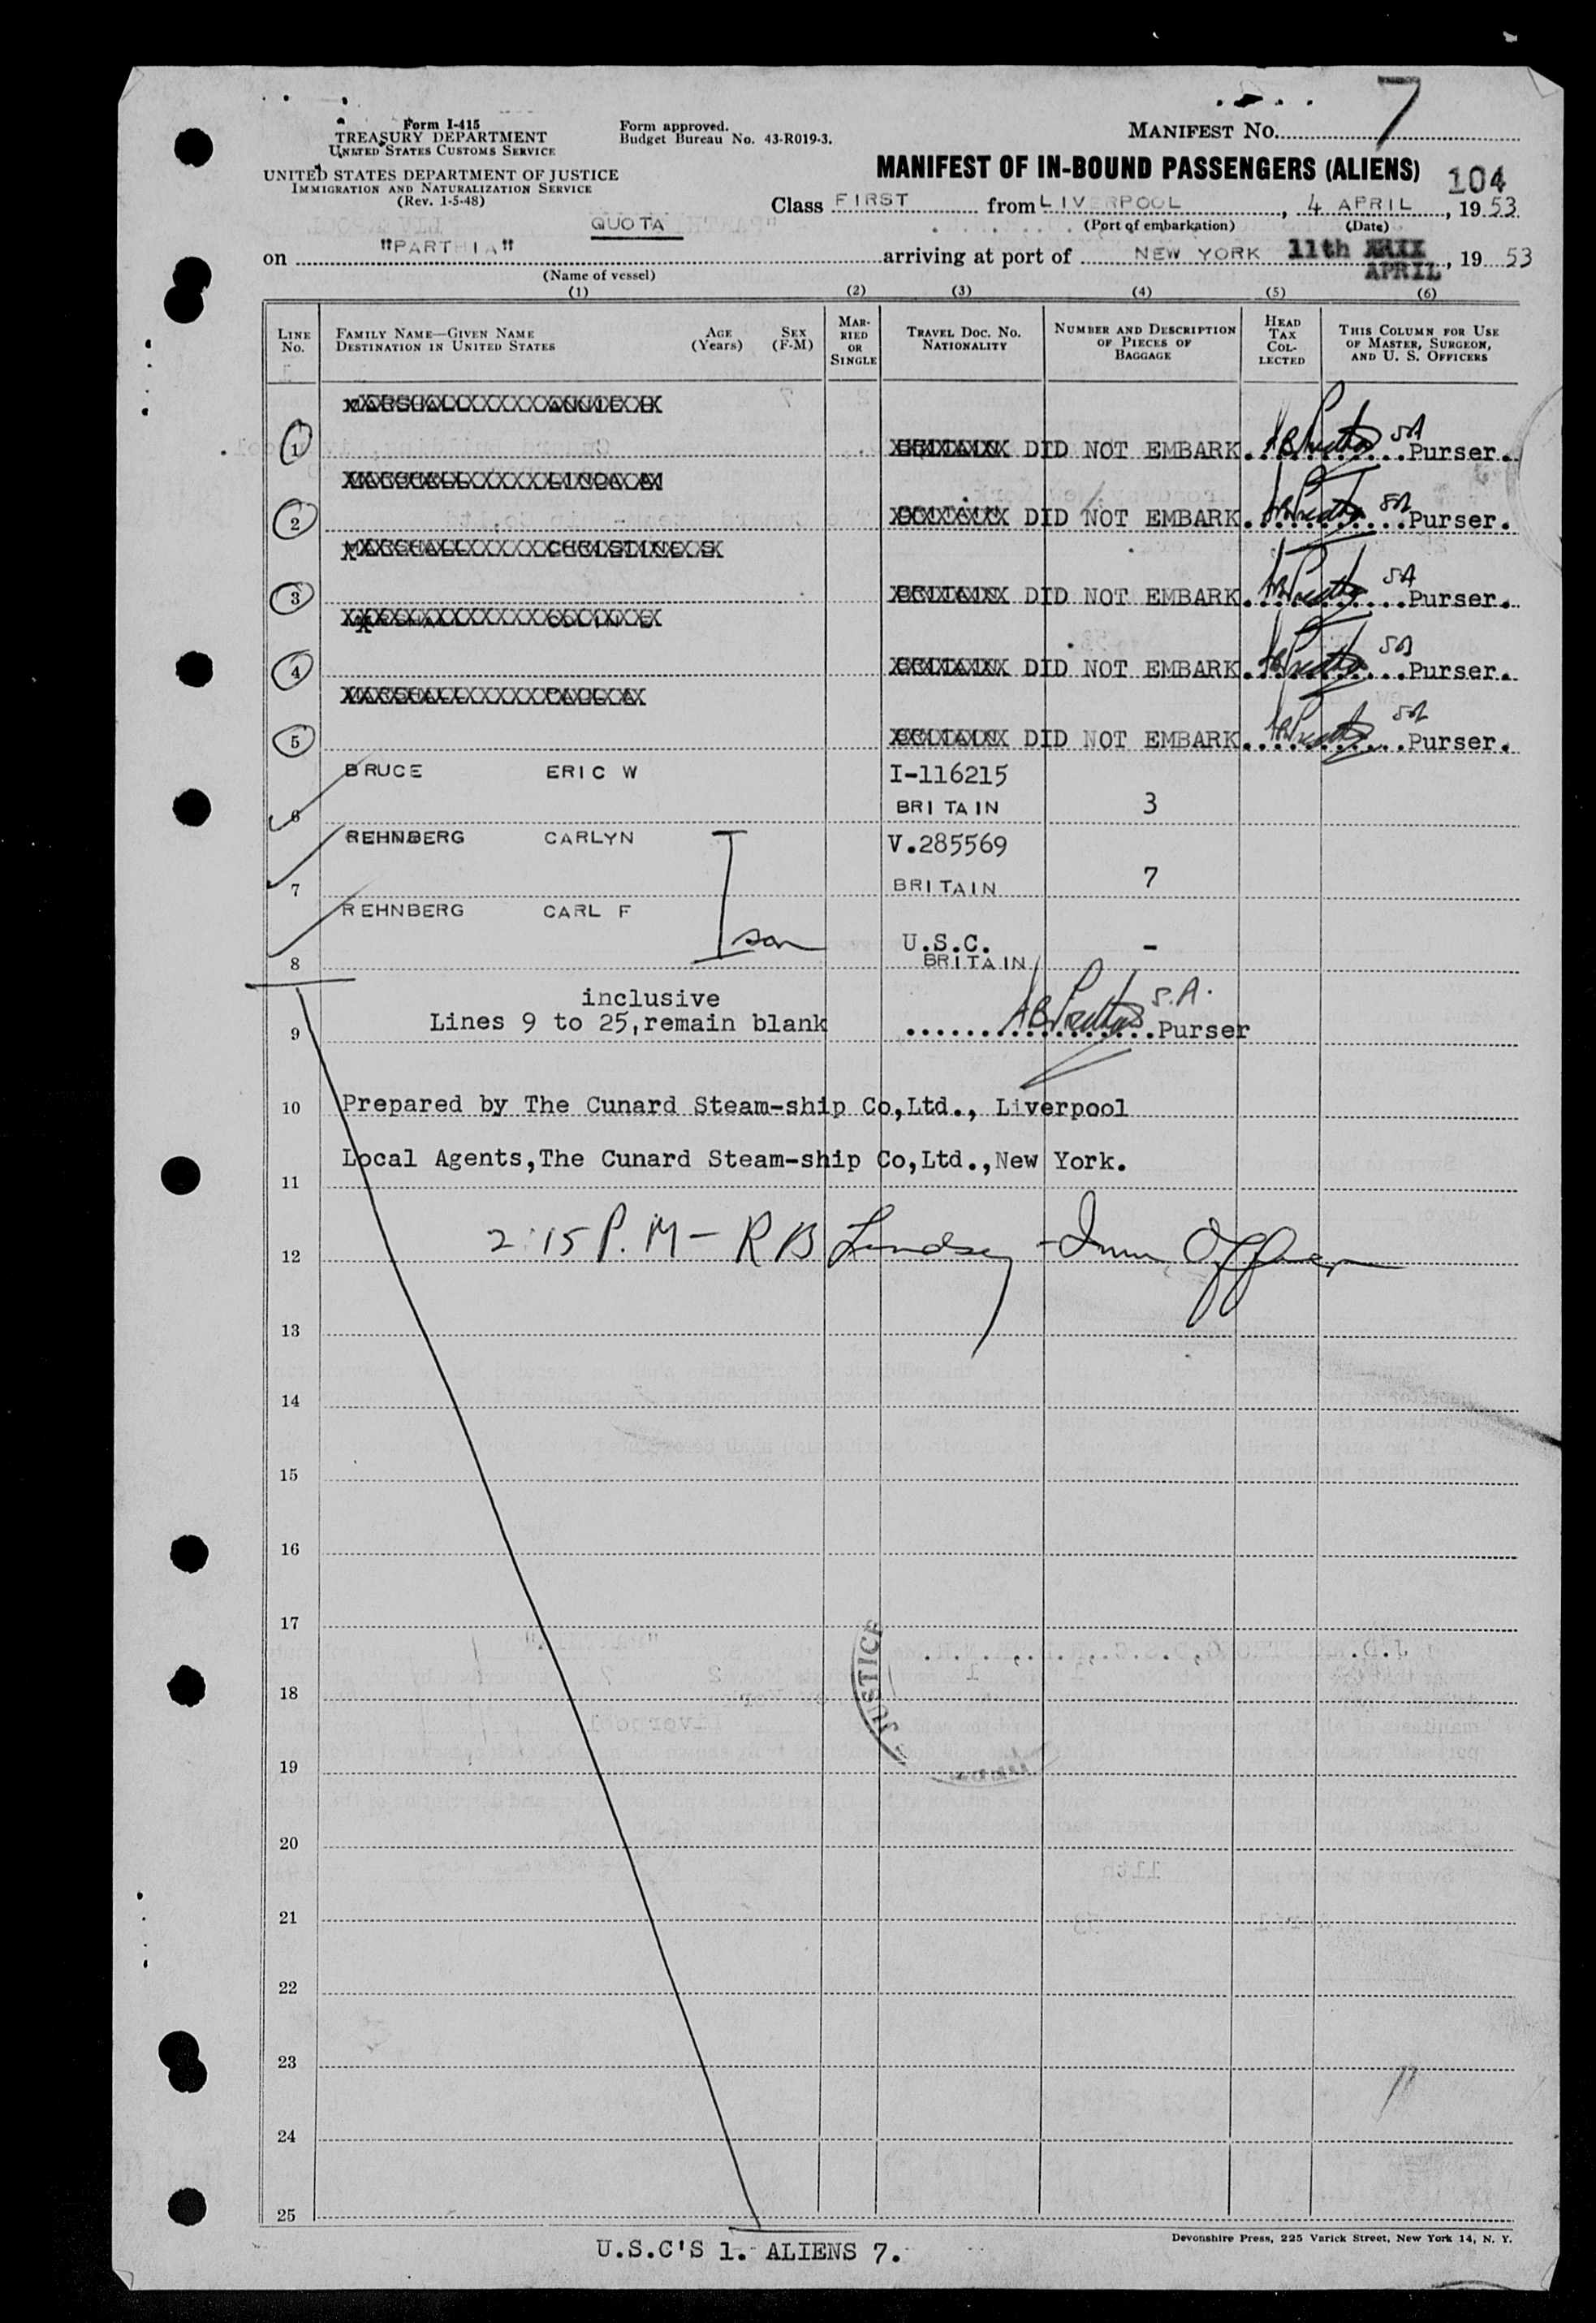 7
Form I-415
TREASURY DEPARTMENT
UNITED STATES CUSTOMS SERVICE
UNITED STATES DEPARTMENT OF JUSTICE
IMMIGRATION AND NATURALIZATION SERVICE
(Rev. 1-5-48)
Form approved.
Budget Bureau No. 43-R019-3.
MANIFEST NO.
MANIFEST OF IN-BOUND PASSENGERS (ALIENS) 104
Class FIRST from LIVERPOOL, 4 APRIL, 1953
(Port of embarkation) (Date)
QUOTA
on "PARTHIA" arriving at port of NEW YORK 11th APRIL, 1953
(Name of vessel)
(1) (2) (3) (4) (5) (6)
LINE NO. FAMILY NAME—GIVEN NAME DESTINATION IN UNITED STATES AGE (Years) SEX (F-M) MARRIED OR SINGLE TRAVEL DOC. NO. NATIONALITY NUMBER AND DESCRIPTION OF PIECES OF BAGGAGE HEAD TAX COLLECTED THIS COLUMN FOR USE OF MASTER, SURGEON, AND U. S. OFFICERS
MARSHALL ANNIE H
1 BRITAIN DID NOT EMBARK. Purser.
MARSHALL LINDA M
2 DID NOT EMBARK. Purser.
MARSHALL CHRISTINE S
3 BRITAIN DID NOT EMBARK. Purser.
MARSHALL COLIN
4 BRITAIN DID NOT EMBARK. Purser.
MARSHALL PAUL A
5 BRITAIN DID NOT EMBARK. Purser.
BRUCE ERIC W I-116215
6 BRITAIN 3
REHNBERG CARLYN V.285569
7 BRITAIN 7
REHNBERG CARL F
son U.S.C. -
8 BRITAIN
inclusive
9 Lines 9 to 25, remain blank S.A. Purser
10 Prepared by The Cunard Steam-ship Co,Ltd., Liverpool
Local Agents,The Cunard Steam-ship Co,Ltd.,New York.
11
12 2:15 P.M - R B Lindsey - Imm Officer
13
14
15
16
17
JUSTICE
18
19
20
21
22
23
24
25
U.S.C'S 1. ALIENS 7.
Devonshire Press, 225 Varick Street, New York 14, N. Y.